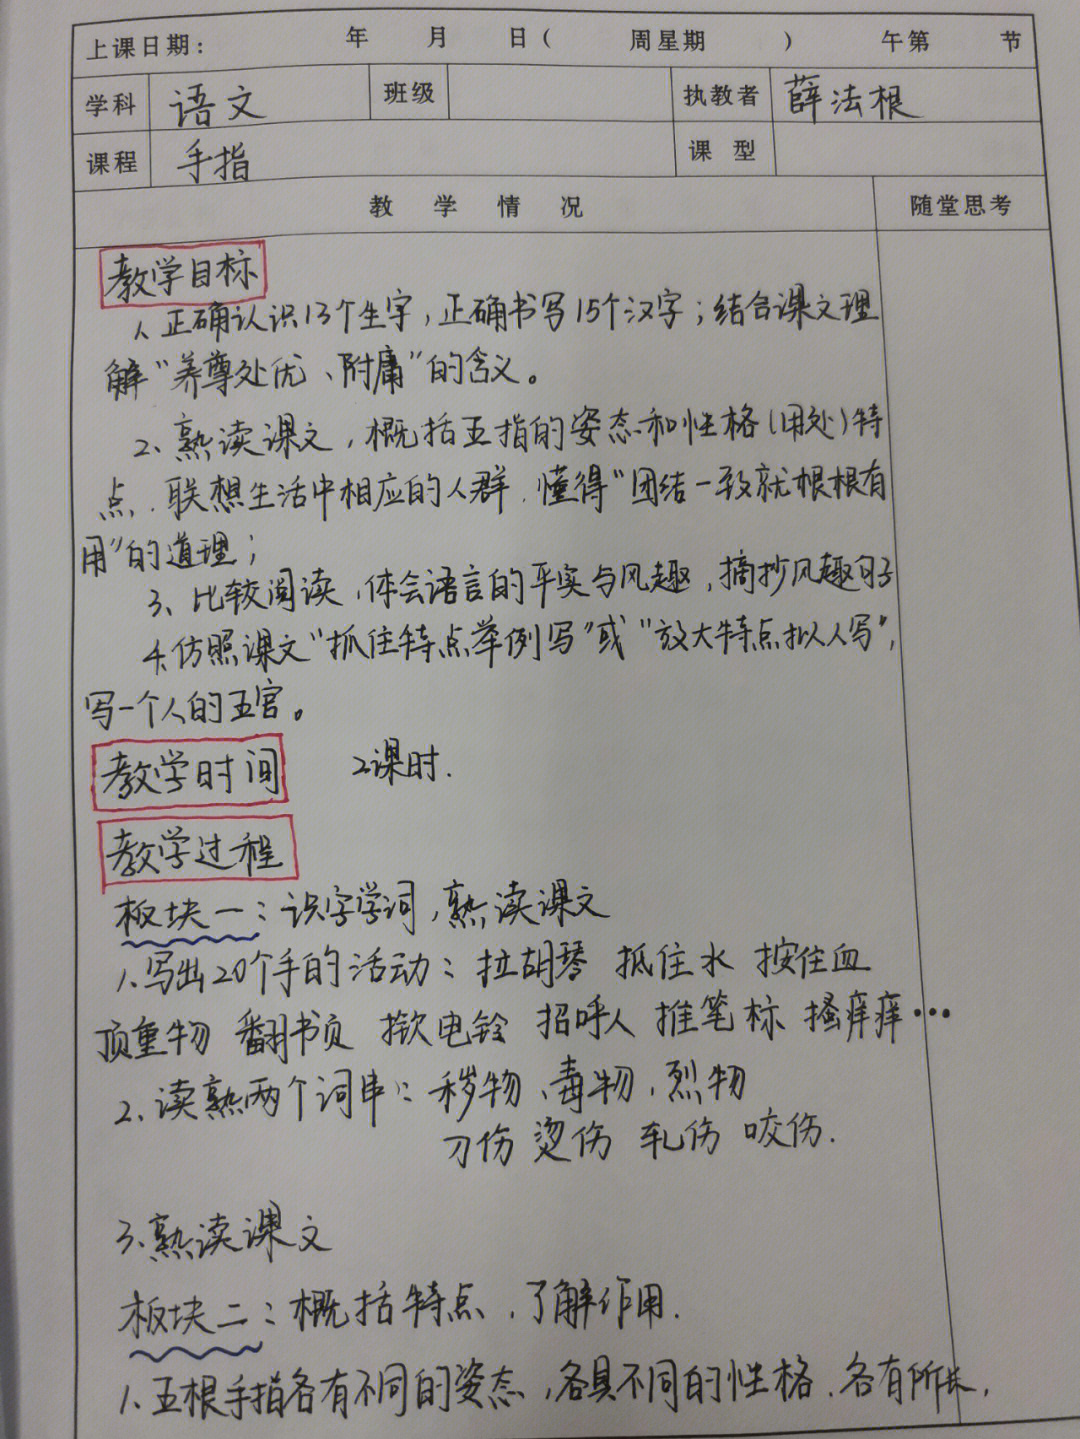 上课日期： 年 月 日（ 周星期 ） 午第 节
学科 语文 班级 执教者 薛法根
课程 手指 课型
教学情况 随堂思考
教学目标
1、正确认识13个生字，正确书写15个汉字；结合课文理
解“养尊处优、附庸”的含义。
2、熟读课文，概括五指的姿态和性格（用处）特
点，联想生活中相应的人群，懂得“团结一致就根根有
用”的道理；
3、比较阅读，体会语言的平实与风趣，摘抄风趣句子
4、仿照课文“抓住特点举例写”或“放大特点拟人写”，
写一个人的五官。
教学时间 2课时.
教学过程
板块一：识字学词，熟读课文
1、写出20个手的活动：拉胡琴 抵住水 按住血
顶重物 翻书页 揿电铃 招呼人 推笔标 搔痒痒…
2、读熟两个词串：秽物、毒物、烈物
刀伤 烫伤 轧伤 咬伤.
3、熟读课文
板块二：概括特点，了解作用.
1、五根手指各有不同的姿态，各具不同的性格，各有所长，